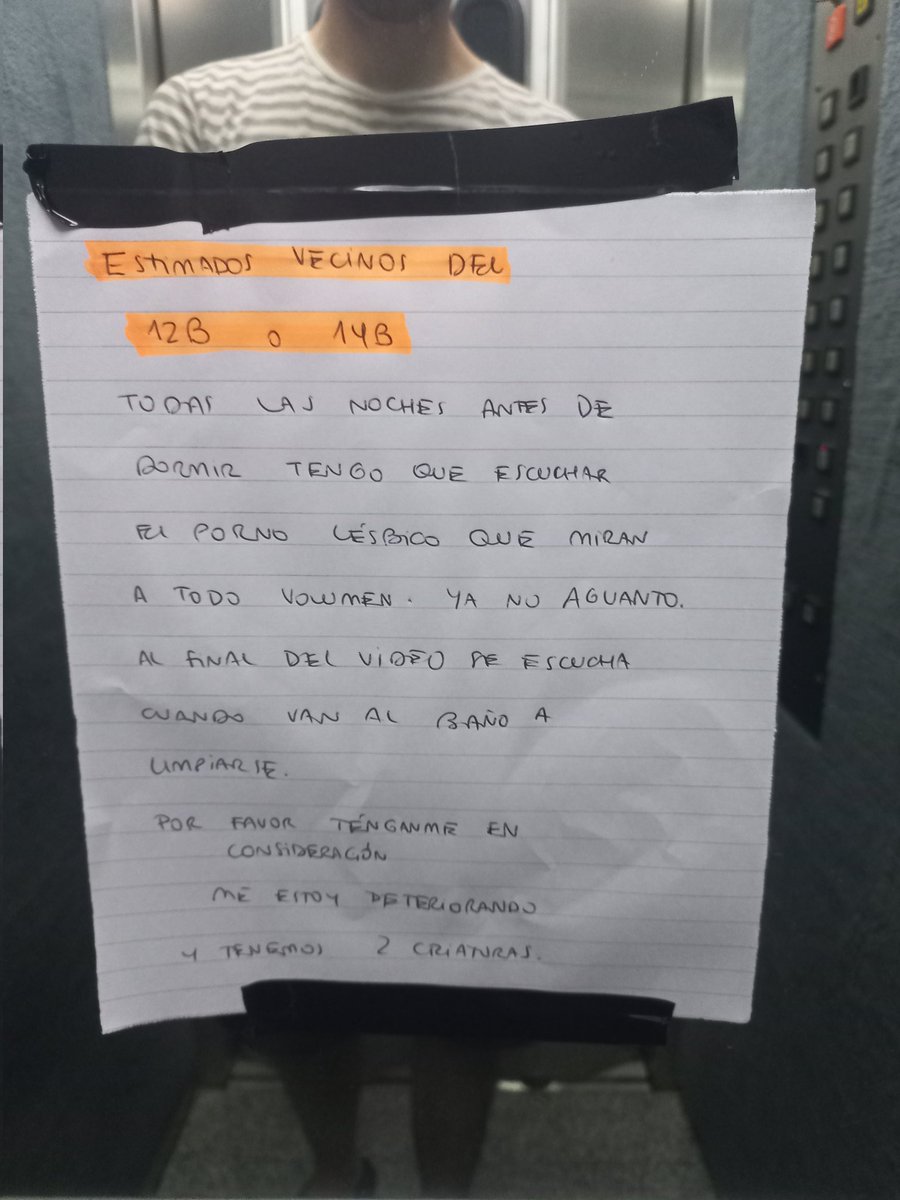 ESTIMADOS VECINOS DEL
12B o 14B
TODAS LAS NOCHES ANTES DE
DORMIR TENGO QUE ESCUCHAR
EL PORNO LÉSBICO QUE MIRAN
A TODO VOLUMEN. YA NO AGUANTO.
AL FINAL DEL VIDEO SE ESCUCHA
CUANDO VAN AL BAÑO A
LIMPIARSE.
POR FAVOR TÉNGANME EN
CONSIDERACIÓN
ME ESTOY DETERIORANDO
Y TENEMOS 2 CRIATURAS.